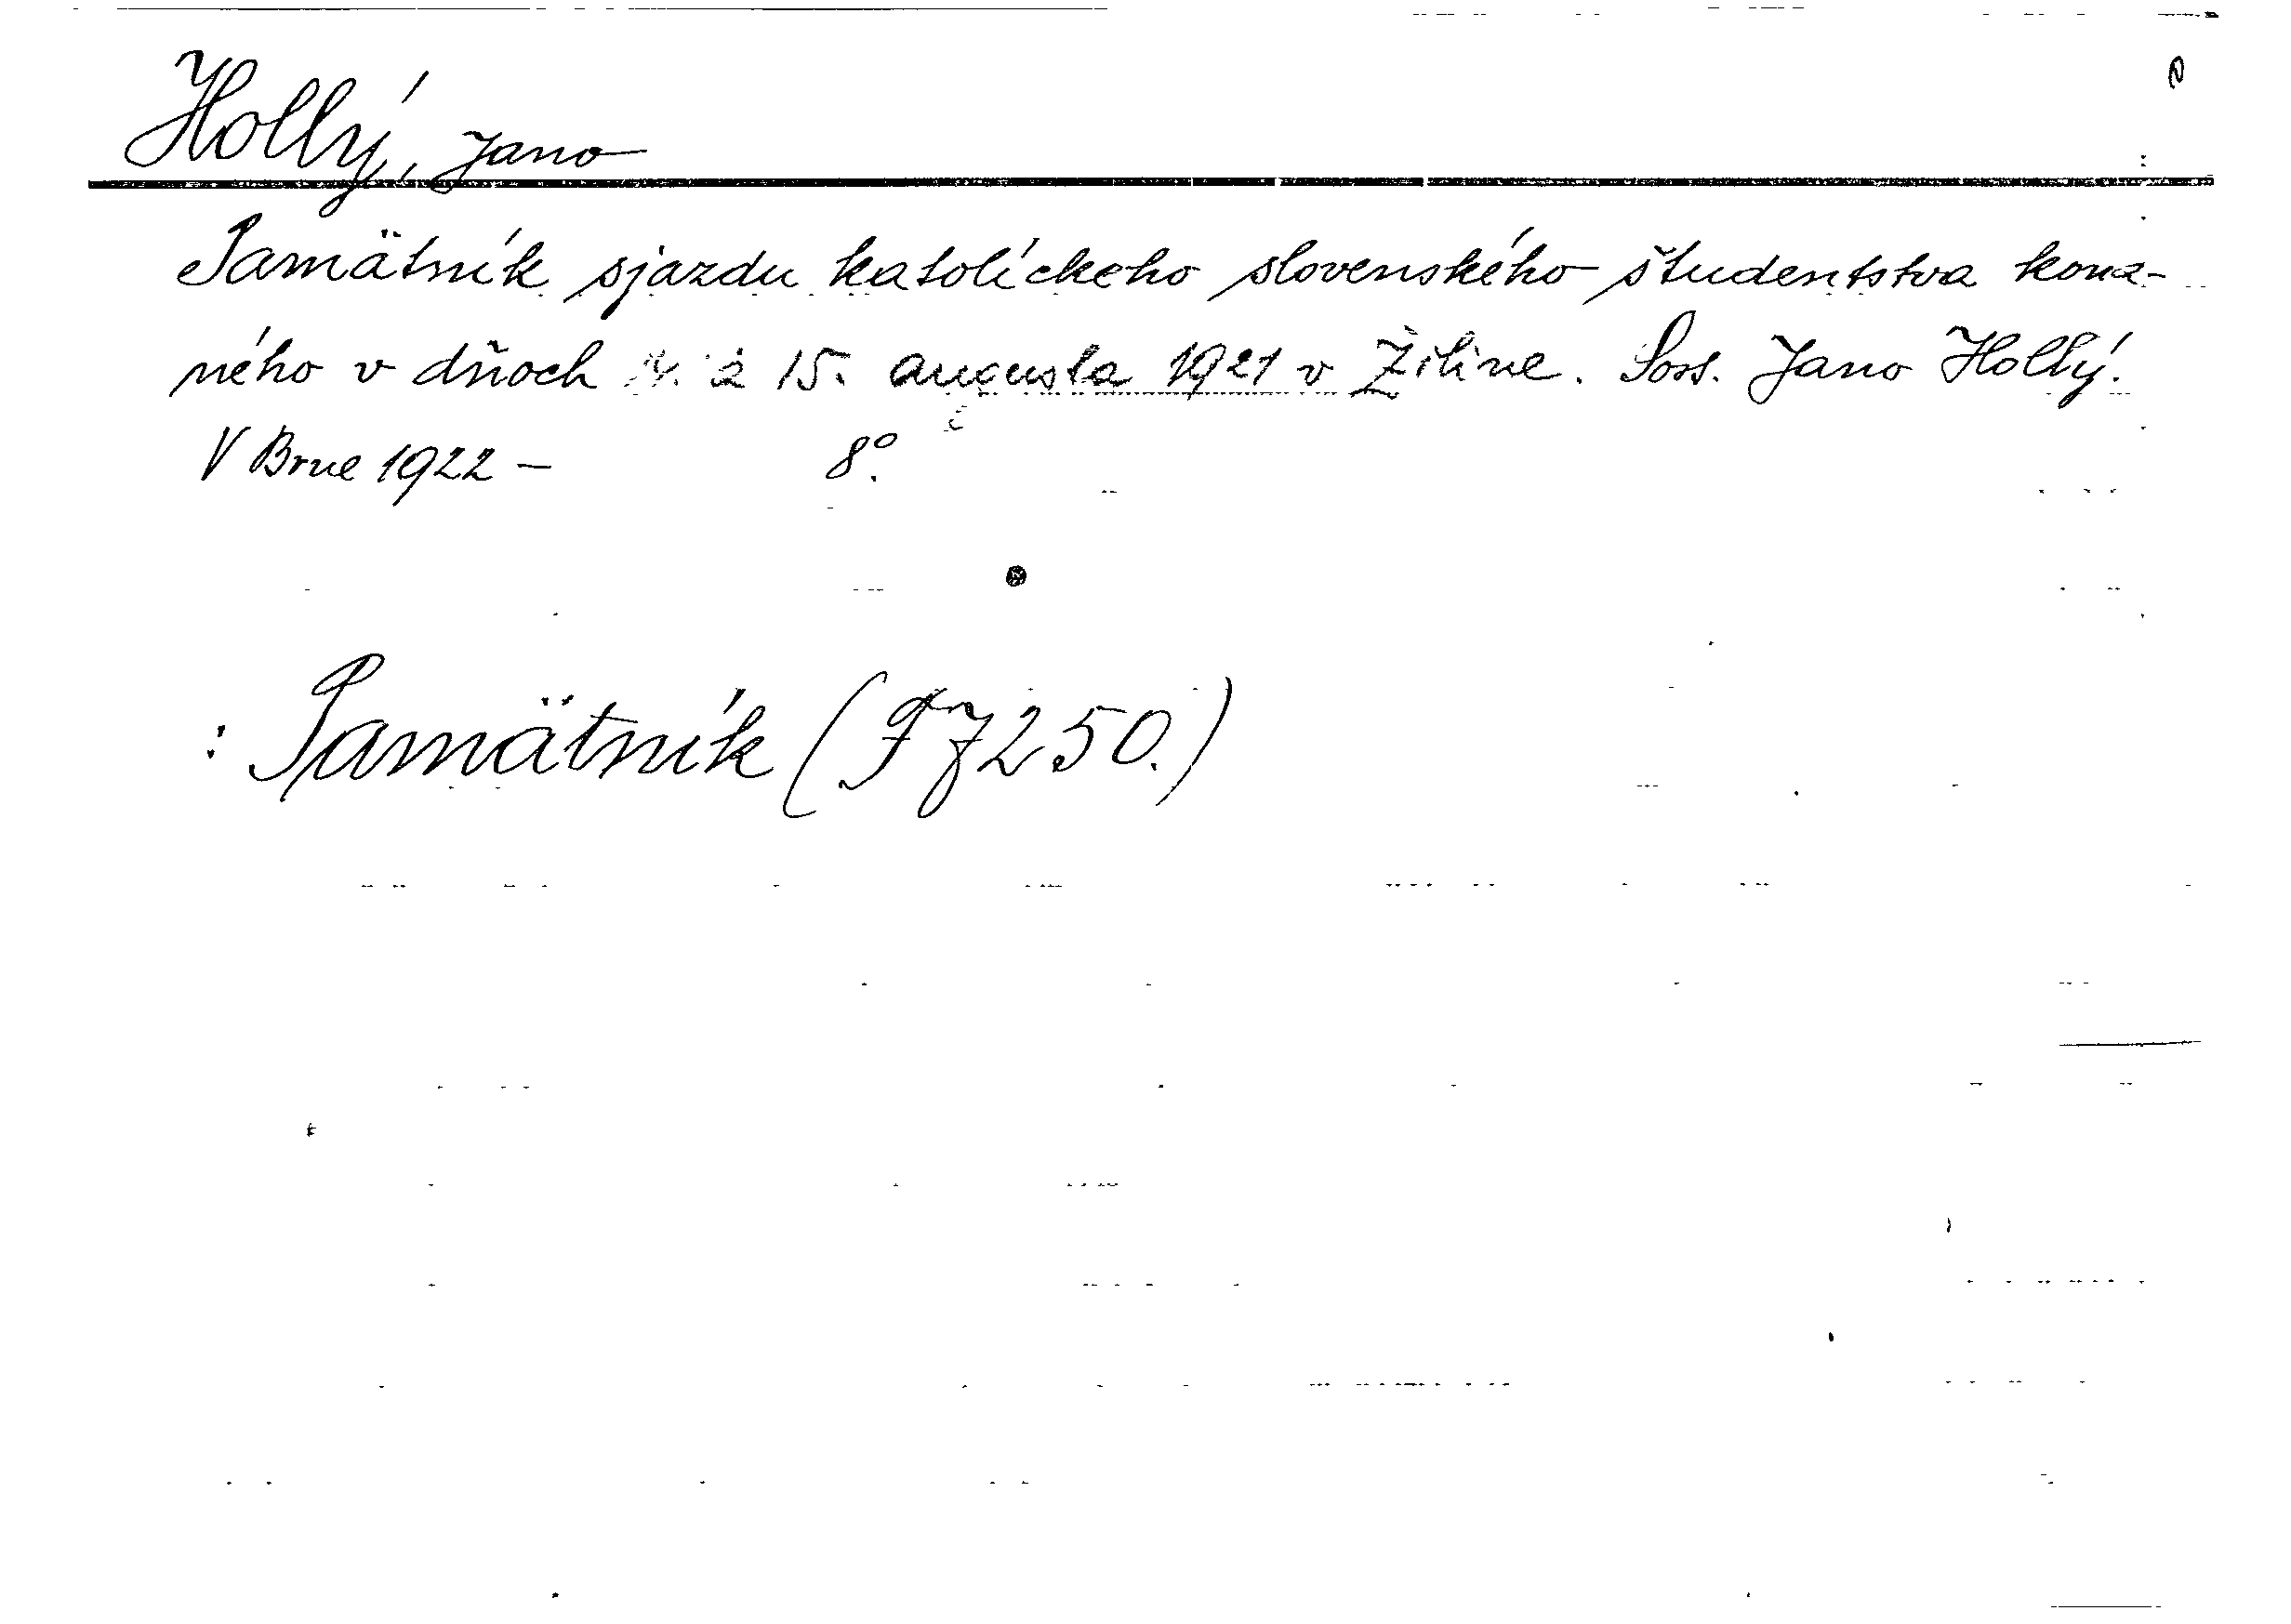 Hollý, Jano
Pamätník sjazdu katolíckeho slovenského študentstva kona-
ného v dňoch 14. a 15. augusta 1921 v Žiline. Sost. Jano Hollý.
V Brne 1922 – 8°.
: Pamätník (F7250.)